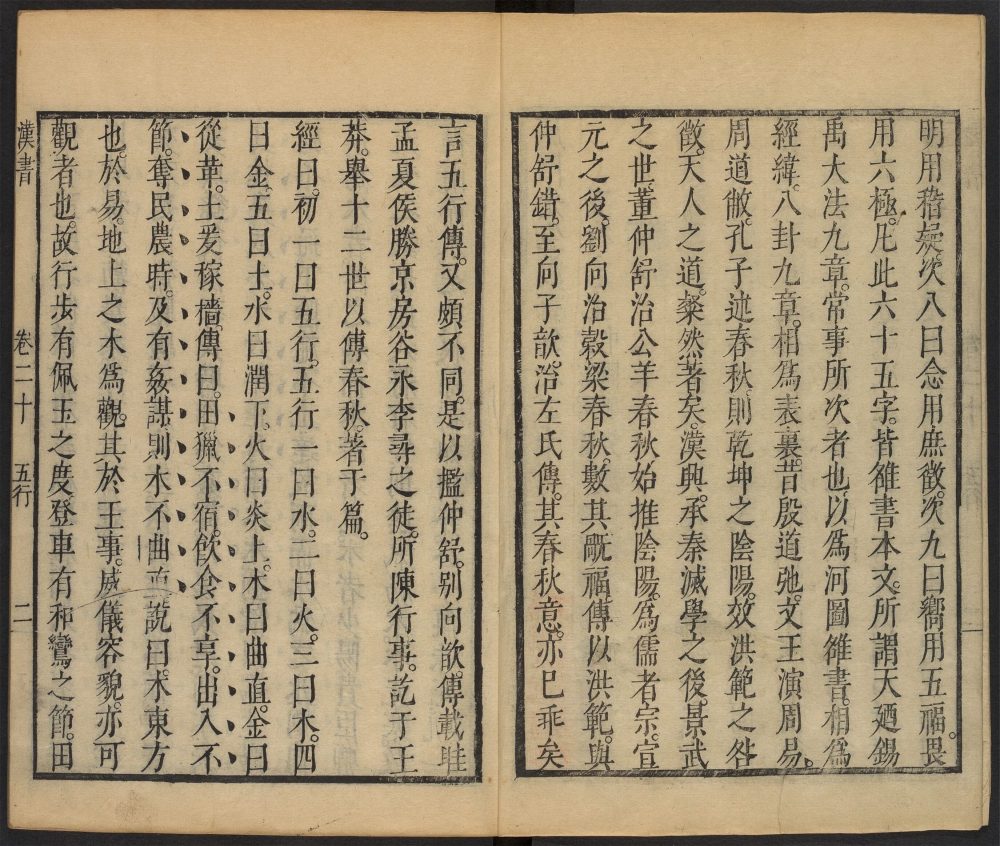 明用稽疑次八曰念用庶徵。次九曰嚮用五福。畏
用六極。凡此六十五字。皆雒書本文。所謂天廼錫
禹大法九章。常事所次者也。以爲河圖雒書。相爲
經緯。八卦九章。相爲表裏。昔殷道弛。文王演周易。
周道敝。孔子述春秋。則乾坤之陰陽。效洪範之咎
徵。天人之道。粲然著矣。漢興。承秦滅學之後。景武
之世。董仲舒治公羊春秋。始推陰陽。爲儒者宗。宣
元之後。劉向治穀梁春秋。數其旤福。傳以洪範。與
仲舒錯。至向子歆。治左氏傳。其春秋意。亦已乖矣
言五行傳。又頗不同。是以㩜仲舒。别向歆。傳載眭
孟夏侯勝京房谷永李尋之徒。所陳行事。訖于王
莽。舉十二世。以傳春秋。著于篇。
經曰。初一曰五行。五行一曰水。二曰火。三曰木。四
曰金。五曰土。水曰潤下。火曰炎上。木曰曲直。金曰
從革。土爰稼穡。傳曰。田獵不宿。飲食不享。出入不
節。奪民農時。及有姦謀。則木不曲直。說曰。木東方
也。於易。地上之木爲觀。其於王事。威儀容貌。亦可
觀者也。故行步有佩玉之度。登車有和鸞之節。田
漢書 卷二十 五行 二